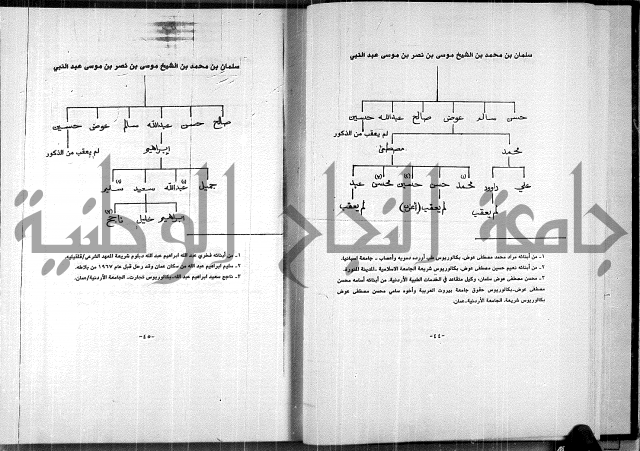 سلمان بن محمد بن الشيخ موسى بن نصر بن موسى عبد النبي
حسن سالم عوض صالح عبدالله حسين
لم يعقب من الذكور
محمد مصطفى
علي داوود محمد (١) حسن حسين (٢) محسن (٣) عيد
لم يعقب لم يعقب لم يعقب
١ - من أبنائه مراد محمد مصطفى عوض، بكالوريوس طب أورده دمويه وأعصاب - جامعة اسبانيا.
٢ - من أبنائه نعيم حسين مصطفى عوض، بكالوريوس شريعة الجامعة الاسلامية - المدينة المنورة.
٣ - محسن مصطفى عوض سلمان، وكيل متقاعد في الخدمات الطبية الأردنية، من أبنائه أسامه محسن
مصطفى عوض، بكالوريوس حقوق جامعة بيروت العربية وأخوه سامي محسن مصطفى عوض
بكالوريوس شريعة، الجامعة الأردنية، عمان.
-٤٤-
سلمان بن محمد بن الشيخ موسى بن نصر بن موسى عبد النبي
صالح حسن عبدالله سالم عوض حسين
إبراهيم لم يعقب من الذكور
جميل عبدالله (١) سعيد سليم (٢)
إبراهيم خليل ناجح (٣)
١ - من أبنائه فخري عبد الله ابراهيم عبد الله دبلوم شريعة المعهد الشرعي/قلقيليه.
٢ - سليم ابراهيم عبد الله من سكان عمان وقد رحل قبل عام ١٩٦٧ من بلاطه.
٣ - ناجح سعيد ابراهيم عبد الله، بكالوريوس تجارت، الجامعة الأردنية/عمان.
-٤٥-
جامعة النجاح الوطنية